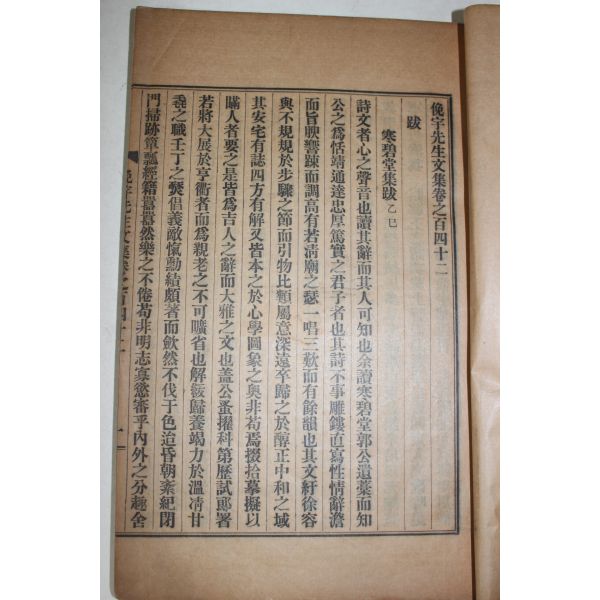 俛宇先生文集卷之百四十二
跋
寒碧堂集跋 乙巳
詩文者心之聲音也讀其辭而其人可知也余讀寒碧堂郭公遺藁而知
公之爲恬靖通達忠厚篤實之君子者也其詩不事雕鏤直寫性情辭澹
而旨腴響踈而調高有若淸廟之瑟一唱三歎而有餘韻也其文紆徐容
與不規規於步驟之節而引物比類屬意深遠卒歸之於醇正中和之域
其安宅有誌四方有解又皆本之於心學圖象之奧非苟焉掇拾摹擬以
瞞人者要之是皆爲吉人之辭而大雅之文也盖公蚤擢科第歷試郎署
若將大展於亨衢者而爲親老之不可曠省也解紱歸養竭力於溫凊甘
毳之職壬丁之燹倡義敵氣勳績頗著而歛然不伐于色逌昏朝紊紀閉
門掃跡簞瓢經籍囂囂然樂之不倦苟非明志寡慾審乎內外之分趣舍
俛宇先生文集卷之百四十二
一